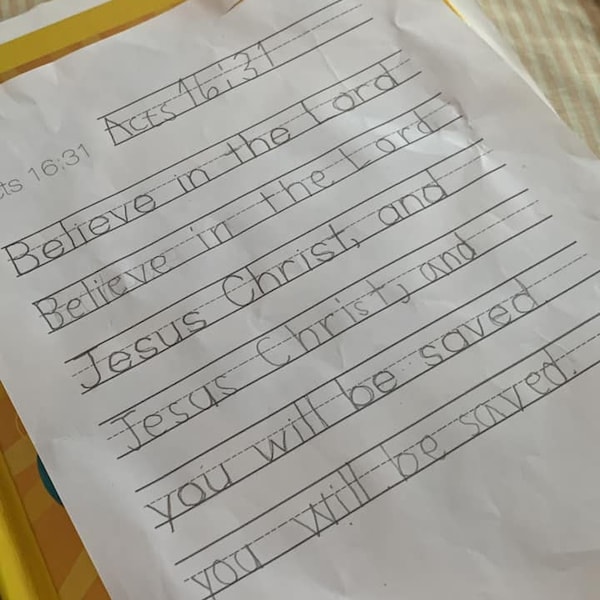 Acts 16:31
cts 16:31
Believe in the Lord
Believe in the Lord
Jesus Christ, and
Jesus Christ, and
you will be saved.
you will be saved.